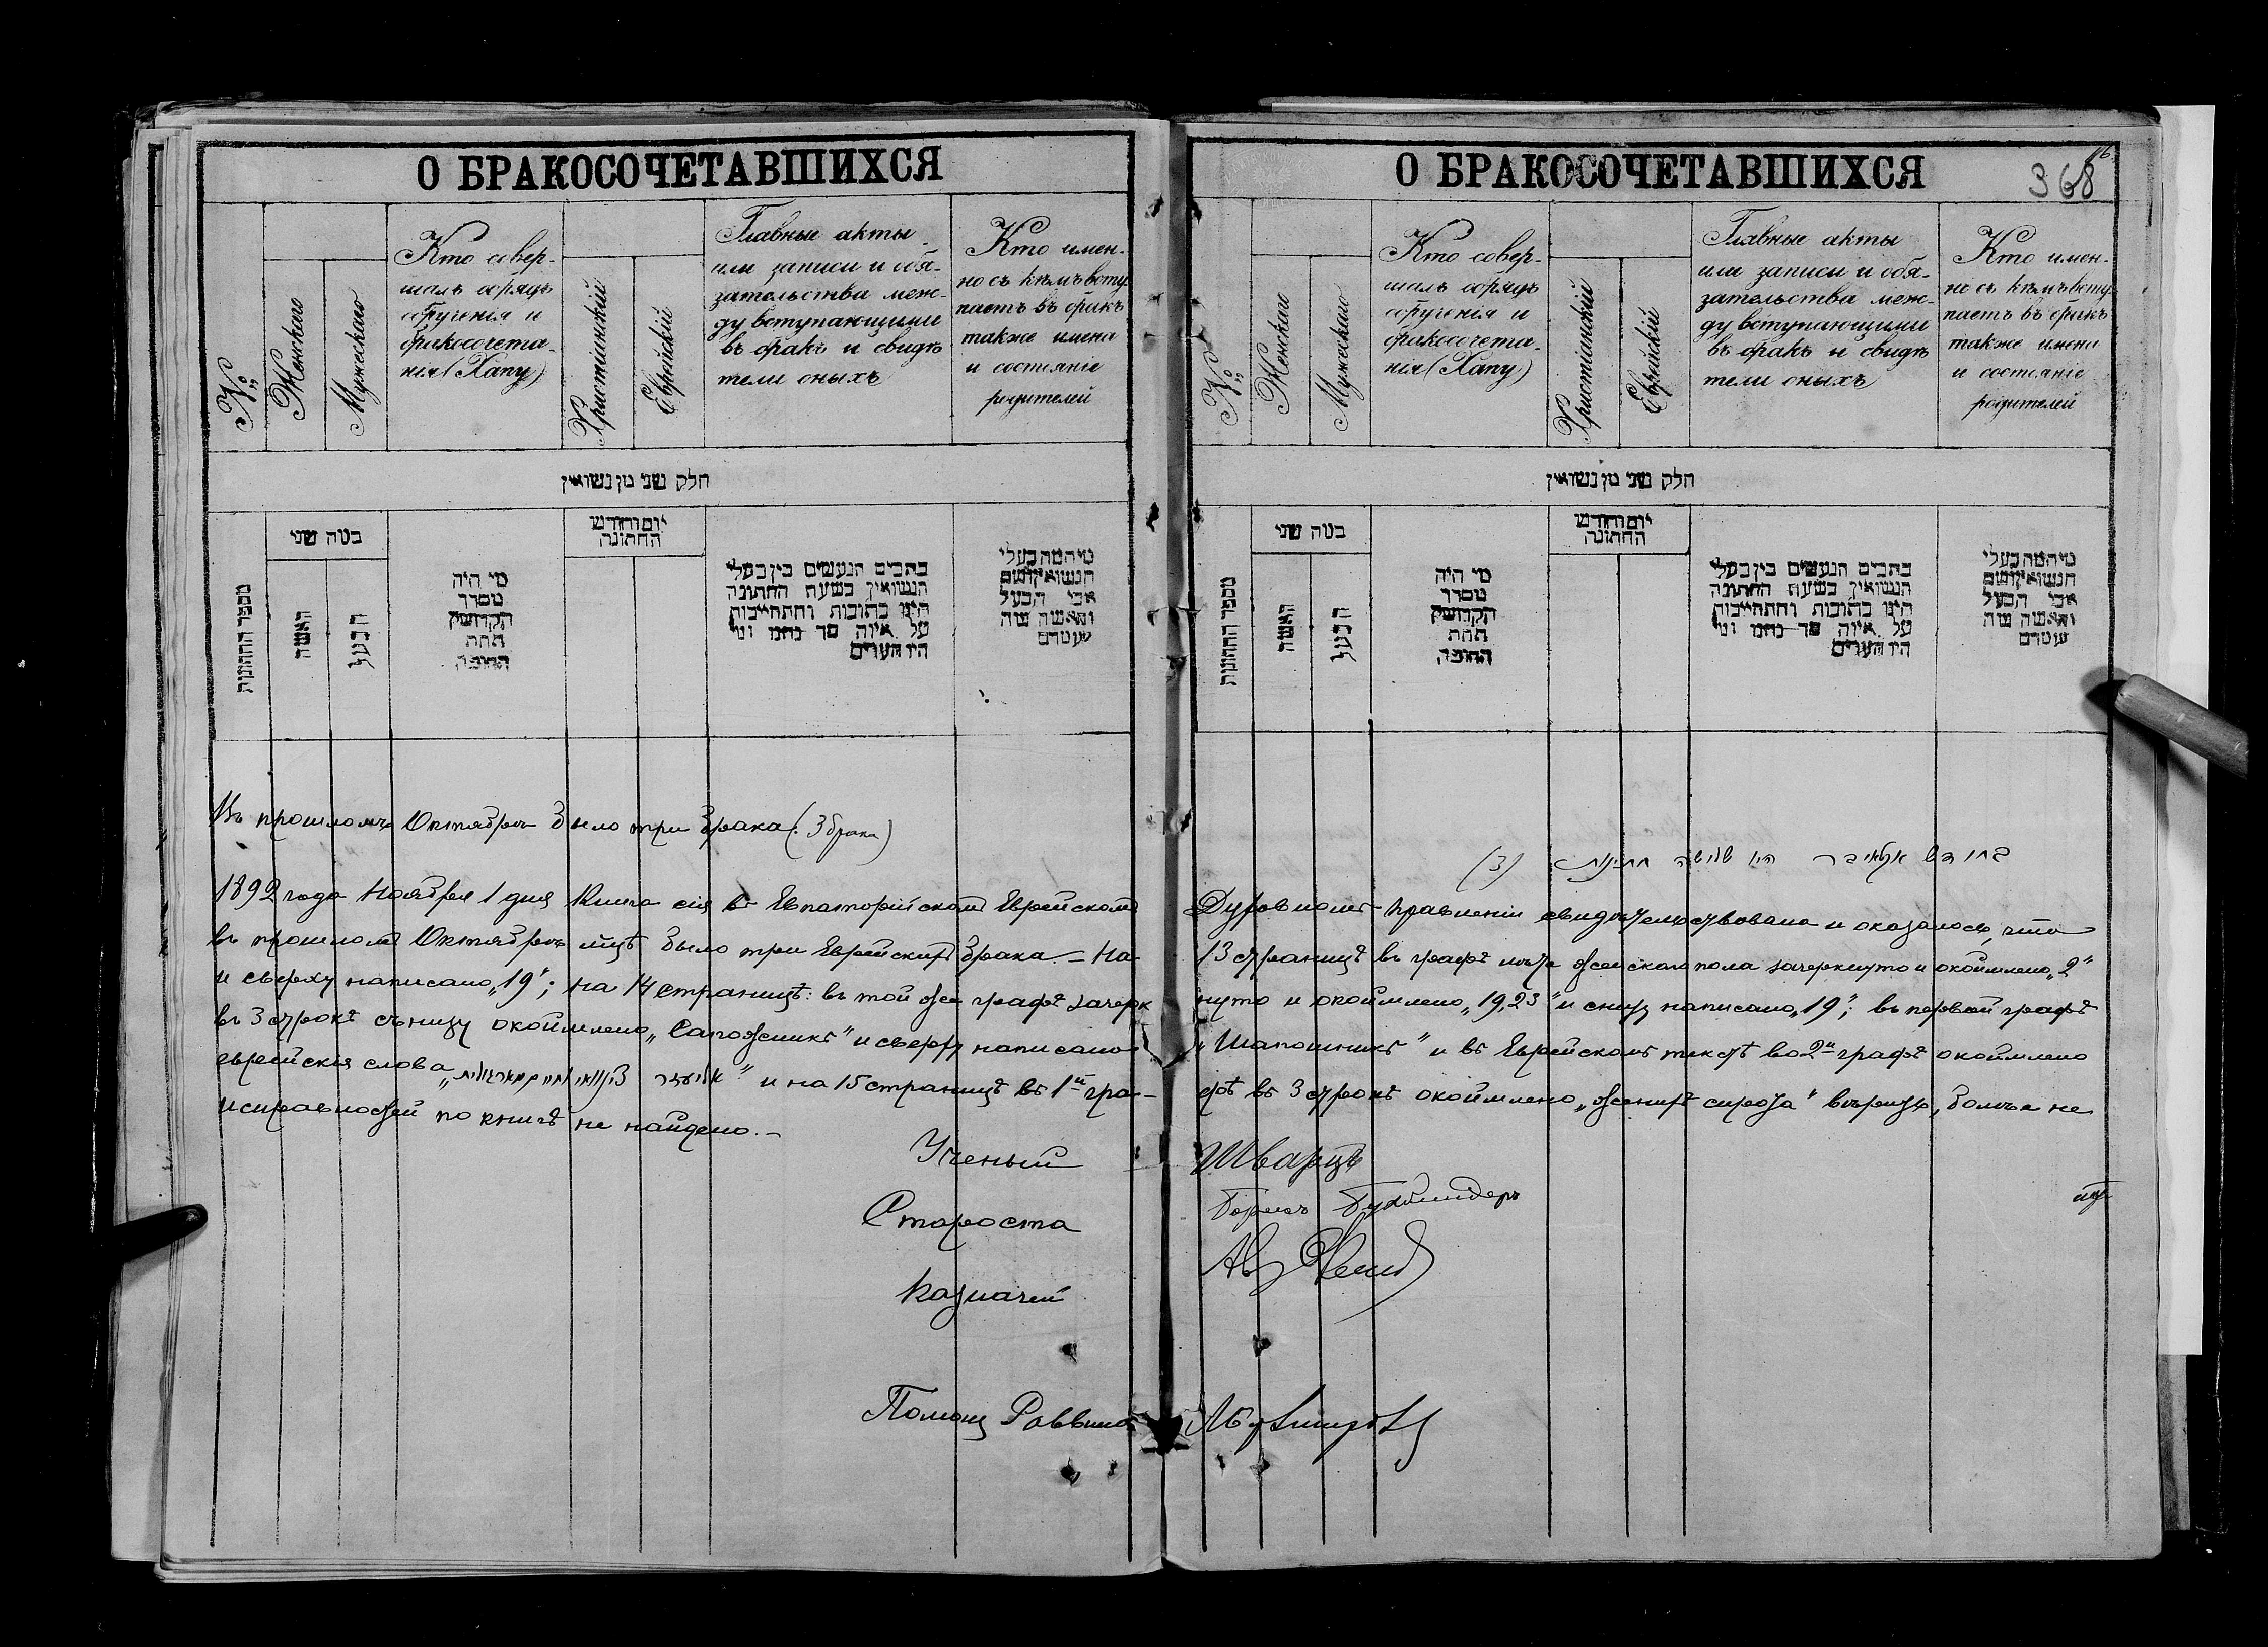 О БРАКОСОЧЕТАВШИХСЯ
№
Женскаго
Мужескаго
Кто совер-
шалъ обрядъ
обрученія и
бракосочета-
нія (Хапу)
Христіанскій
Еврейскій
Главные акты
или записи и обя-
зательства меж-
ду вступающими
въ бракъ и свидѣ
тели оныхъ
Кто имен-
но съ кѣмъ всту
паетъ въ бракъ
также имена
и состояніе
родителей
חלק שני מן נשואין
מספר החתונות
במה שני
האשה
הבעל
מי היה
מסדר
הקדושין
תחת
החופה
יום וחודש
החתונה
כתבים הנעשים בין בעלי
הנשואין בשעת החתונה
היינו כתובות והתחייבות
על איזה סך כתבו ומי
היו העדים
מי המה בעלי
הנשואין ושם
אבי הבעל
והאשה ומה
מעמדם
Въ прошломъ Октябрѣ было три брака (3 брака)
1892 года Ноября 1 дня Книга сія въ Евпаторійскомъ Еврейскомъ
въ прошломъ Октябрѣ мцѣ было три Еврейскихъ брака – На
и сверху написано „19“; на 14 страницѣ: въ той же графѣ зачерк
въ 3 строкѣ снизу окоймлено „Сапожникъ“ и сверху написано
еврейскія слова и на 15 страницѣ въ 1й гра-
исправностей по книгѣ не найдено.–
Ученый
Староста
Казначей
Помощ Раввина
О БРАКОСОЧЕТАВШИХСЯ
368
№
Женскаго
Мужескаго
Кто совер-
шалъ обрядъ
обрученія и
бракосочета-
нія (Хапу)
Христіанскій
Еврейскій
Главные акты
или записи и обя-
зательства меж-
ду вступающими
въ бракъ и свидѣ
тели оныхъ
Кто имен-
но съ кѣмъ всту
паетъ въ бракъ
также имена
и состояніе
родителей
חלק שני מן נשואין
מספר החתונות
במה שני
האשה
הבעל
מי היה
מסדר
הקדושין
תחת
החופה
יום וחודש
החתונה
כתבים הנעשים בין בעלי
הנשואין בשעת החתונה
היינו כתובות והתחייבות
על איזה סך כתבו ומי
היו העדים
מי המה בעלי
הנשואין ושם
אבי הבעל
והאשה ומה
מעמדם
בחודש אקטאבר היו שלשה חתונות (3)
Духовномъ Правленіи свидѣтельствована и оказалось, что
13 страницѣ въ графѣ женскаго пола зачеркнуто и окоймлено „2“
нуто и окоймлено „19,23“ и снизу написано „19“; въ первой графѣ
„Шапошникъ“ и въ Еврейскомъ текстѣ во 2й графѣ окоймлено
фѣ въ 3 строкѣ окоймлено не
Шварцъ